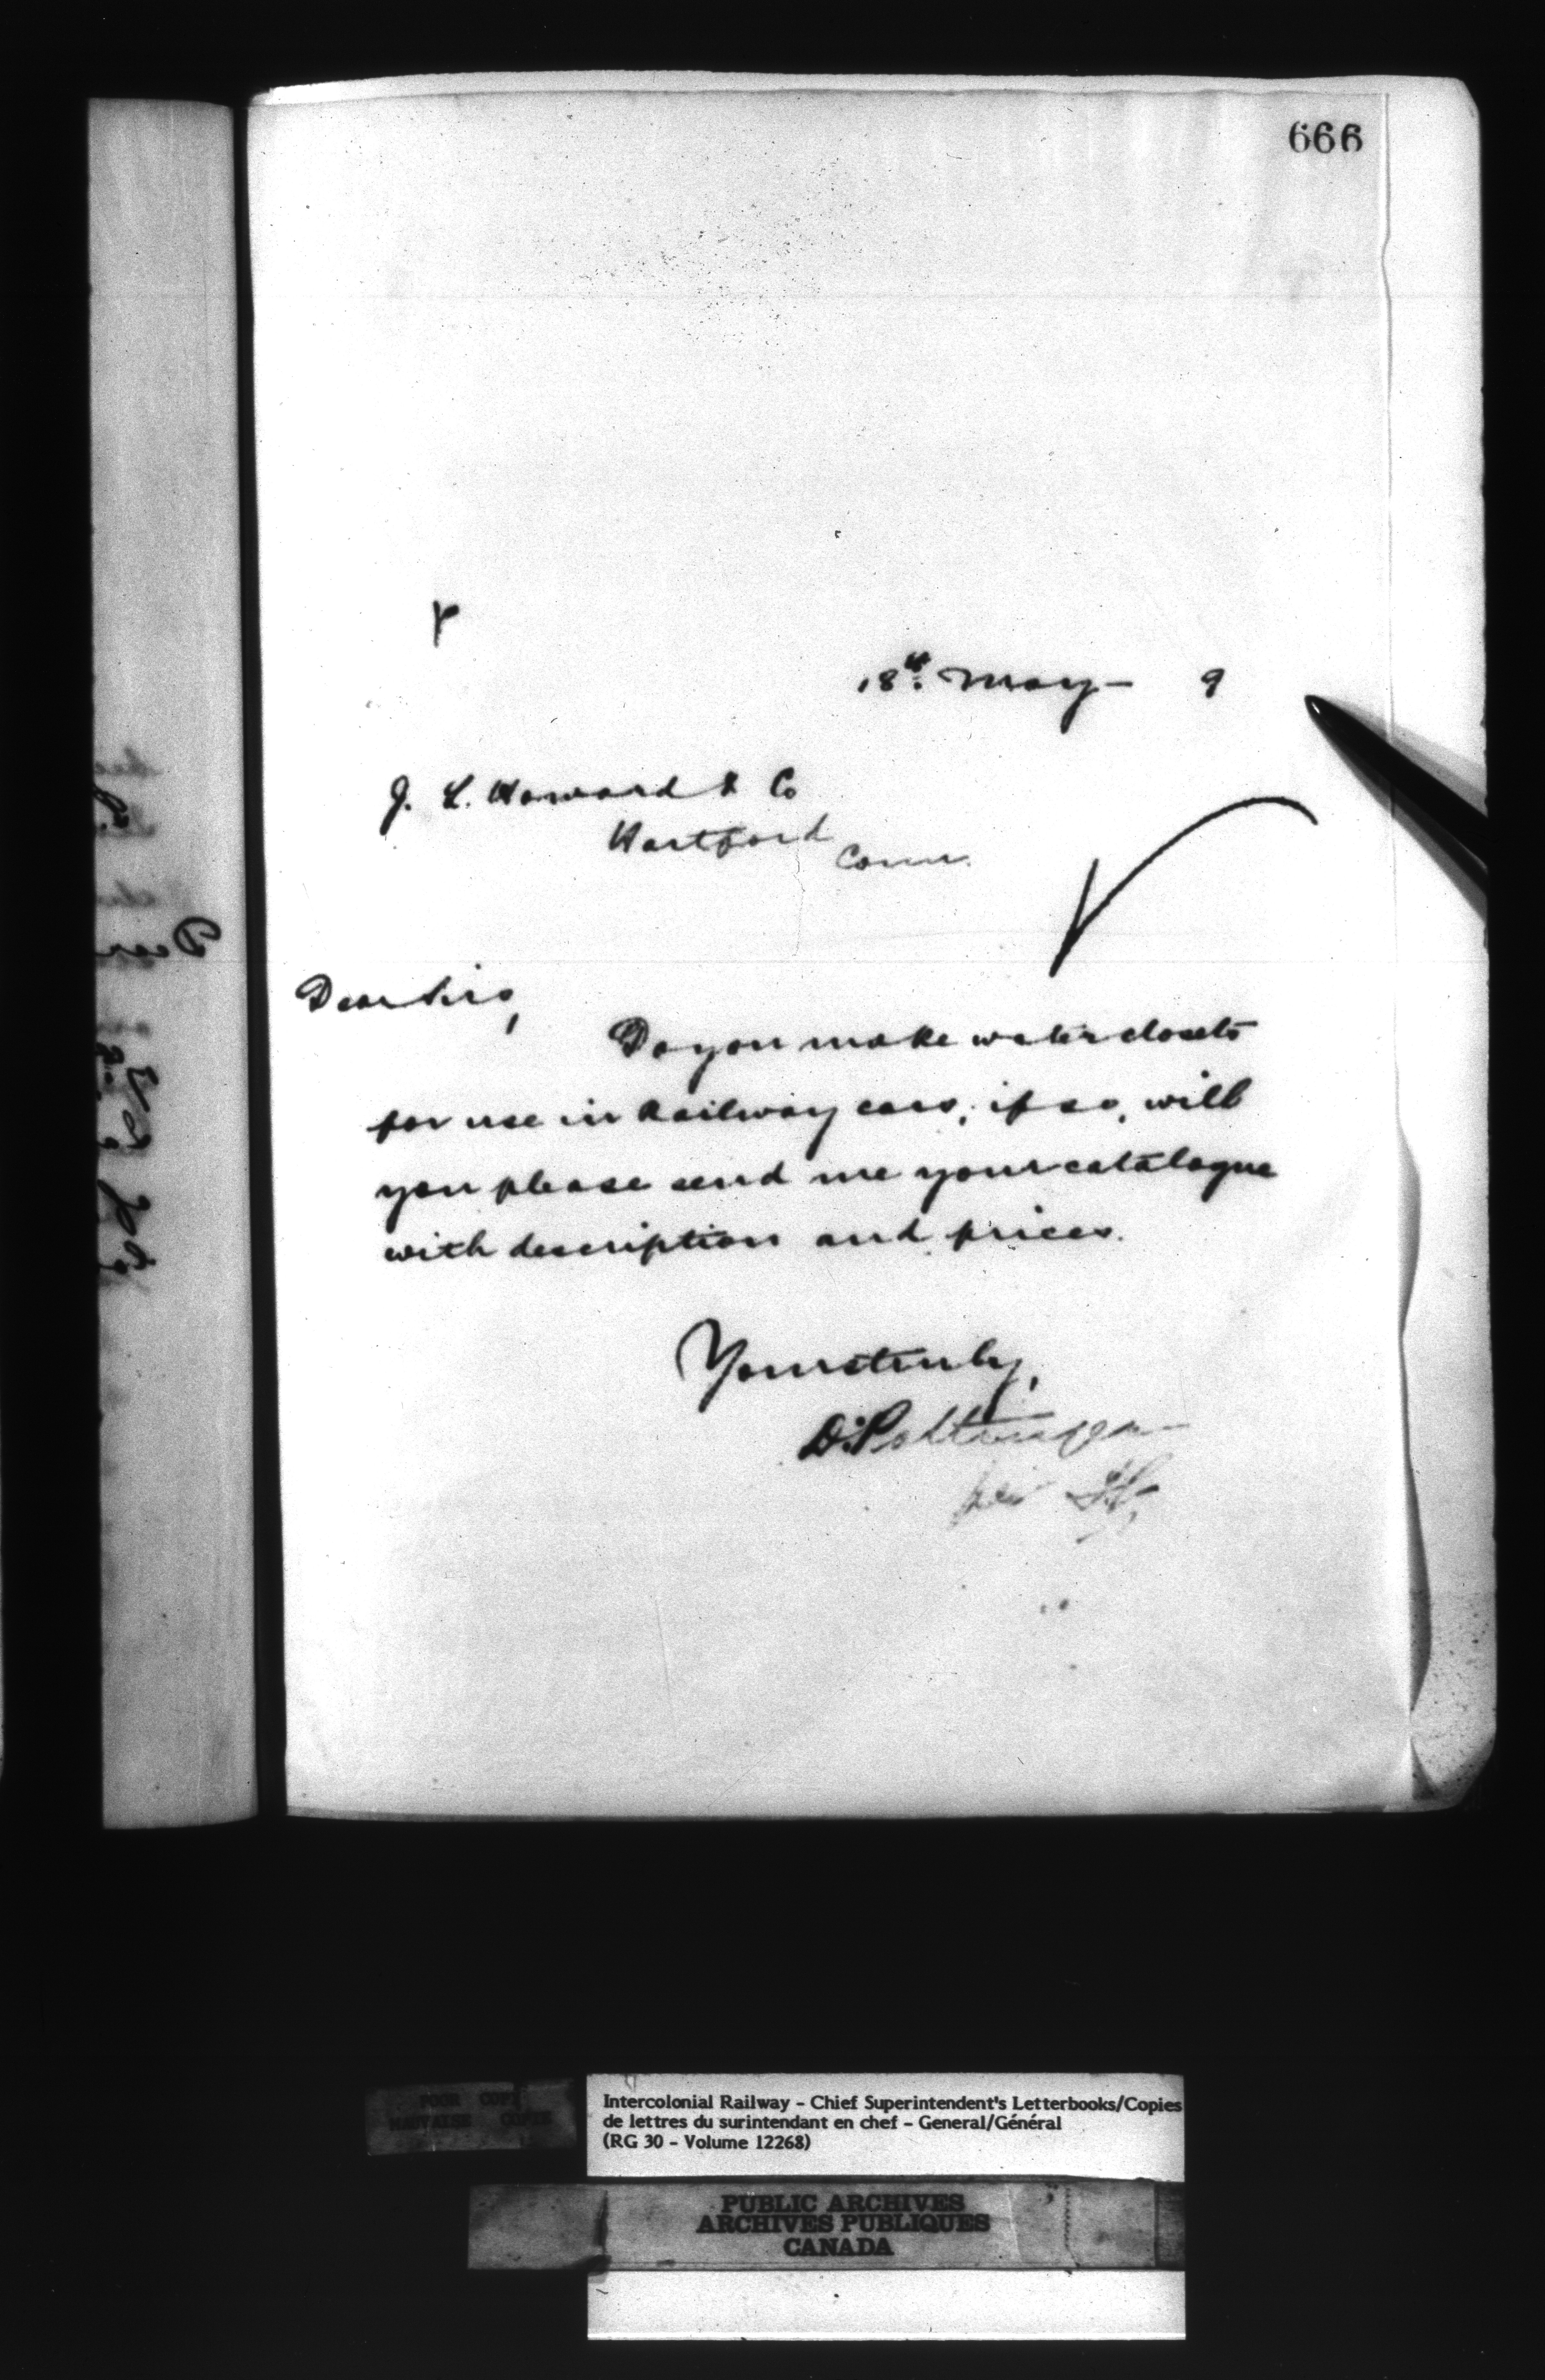 666
18th May 9
J. L. Howard & Co
Hartford
Conn.
Dear Sirs,
Do you make water closets
for use in Railway cars, if so, will
you please send me your catalogue
with description and prices.
Yours truly,
D. Pottinger
per
POOR COPY
MAUVAISE COPIE
Intercolonial Railway - Chief Superintendent's Letterbooks/Copies
de lettres du surintendant en chef - General/Général
(RG 30 - Volume 12268)
PUBLIC ARCHIVES
ARCHIVES PUBLIQUES
CANADA